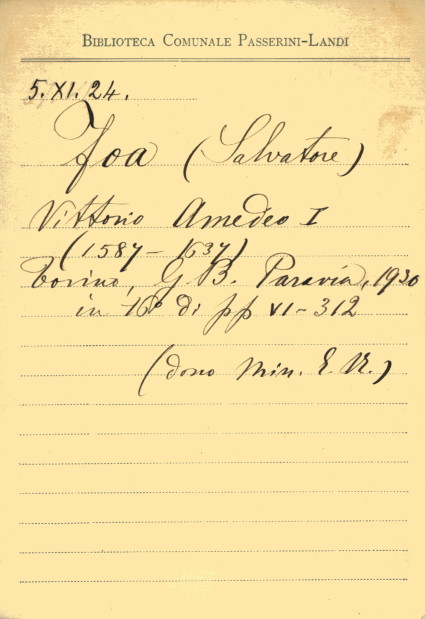 BIBLIOTECA COMUNALE PASSERINI-LANDI
5.XI.24.
Foa (Salvatore)
Vittorio Amedeo I
(1587-1637)
Torino, G B. Paravia, 1930
in 16º di pp VI-312
(dono Min. E. N.)